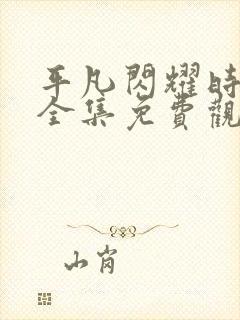 平凡閃耀時
全集免費觀
山肖